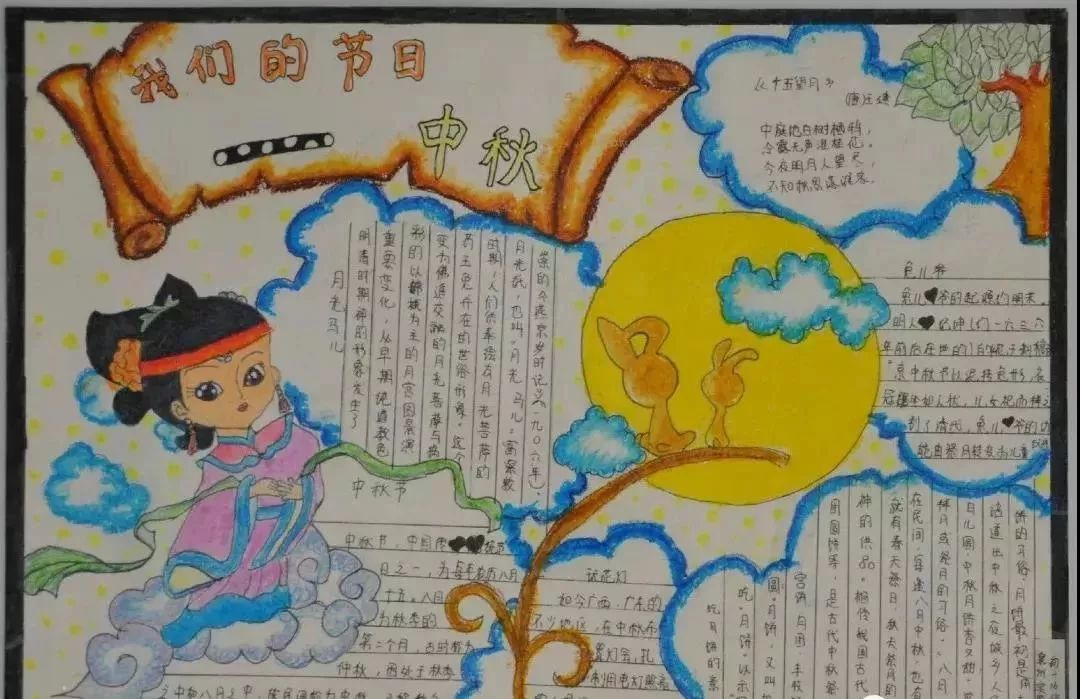 我们的节日
中秋
《十五望月》
唐 王建
中庭地白树栖鸦，
冷露无声湿桂花。
今夜月明人望尽，
不知秋思落谁家。
月光马儿
明清时期神的形象发生了
重要变化，从早期纯道教色
彩的以嫦娥为主的月宫图景演
变为佛道交融的月光菩萨与捣
药玉兔并在的世俗形象。这个
时期，人们供奉绘有月光菩萨的
月光纸，也叫"月光马儿"。富察敦
崇的《燕京岁时记》(一九〇六年)，
兔儿爷
兔儿爷的起源约明末。
明人纪坤(约一六三六
年前后在世的)
京中秋节以泥抟兔形，衣
冠
到了清代，兔儿爷的功
能由祭月转变为儿童
中秋节
中秋节 中国
日之一，为每年农历八月
十五。八月
为秋季的
第二个月，古时称为
仲秋，因处于秋季
之中和八月之中，
玩花灯
如今广西、广东的
不少地区，在中秋布
置灯会，扎
利用电灯照亮
吃月饼的
吃"月饼"以示
圆。月饼，又叫
宫饼、月团、丰收
团圆饼等，是古代中秋祭
神的供品。据传我国古代
就有春天祭日、秋天祭月的
在民间，每逢八月中秋，也有
拜月或祭月的习俗。"八月
月儿圆，中秋月饼香又甜"，
话道出中秋之夜城乡人
饼的习俗。月饼最初是用